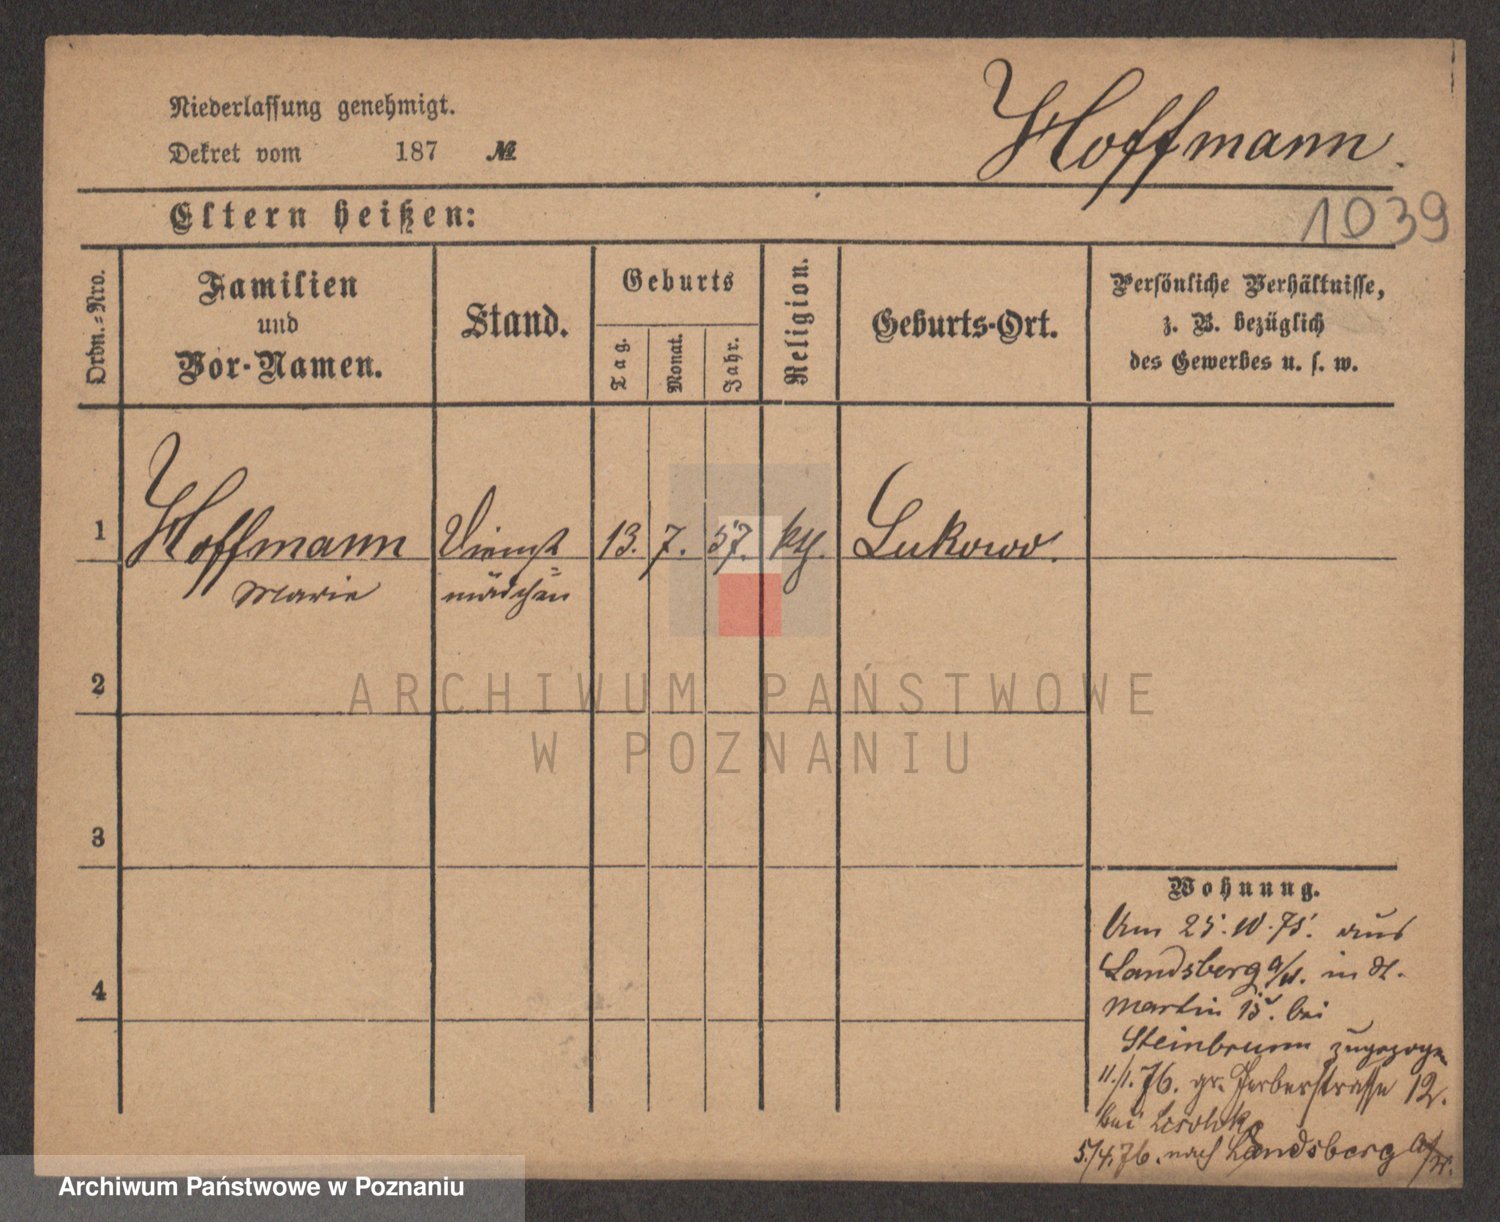 Hoffmann.
Niederlassung genehmigt.
Dekret vom 187 №
1039
Eltern heißen:
Ordn.-Nro.
Familien
und
Vor-Namen.
Stand.
Geburts
Tag.
Monat.
Jahr.
Religion.
Geburts-Ort.
Persönliche Verhältnisse,
z. B. bezüglich
des Gewerbes u. s. w.
1 Hoffmann Dienst 13. 7. 57. kth. Lukowo.
Marie mädchen
2
ARCHIWUM PAŃSTWOWE
W POZNANIU
3
Wohnung.
Am 25. 10. 75. aus
Landsberg a/W. in St.
4
Martin 15. bei
Steinbrunn zugezogen
11./1. 76. gr. Gerberstrasse 12.
bei
5./4. 76. nach Landsberg a/W.
Archiwum Państwowe w Poznaniu